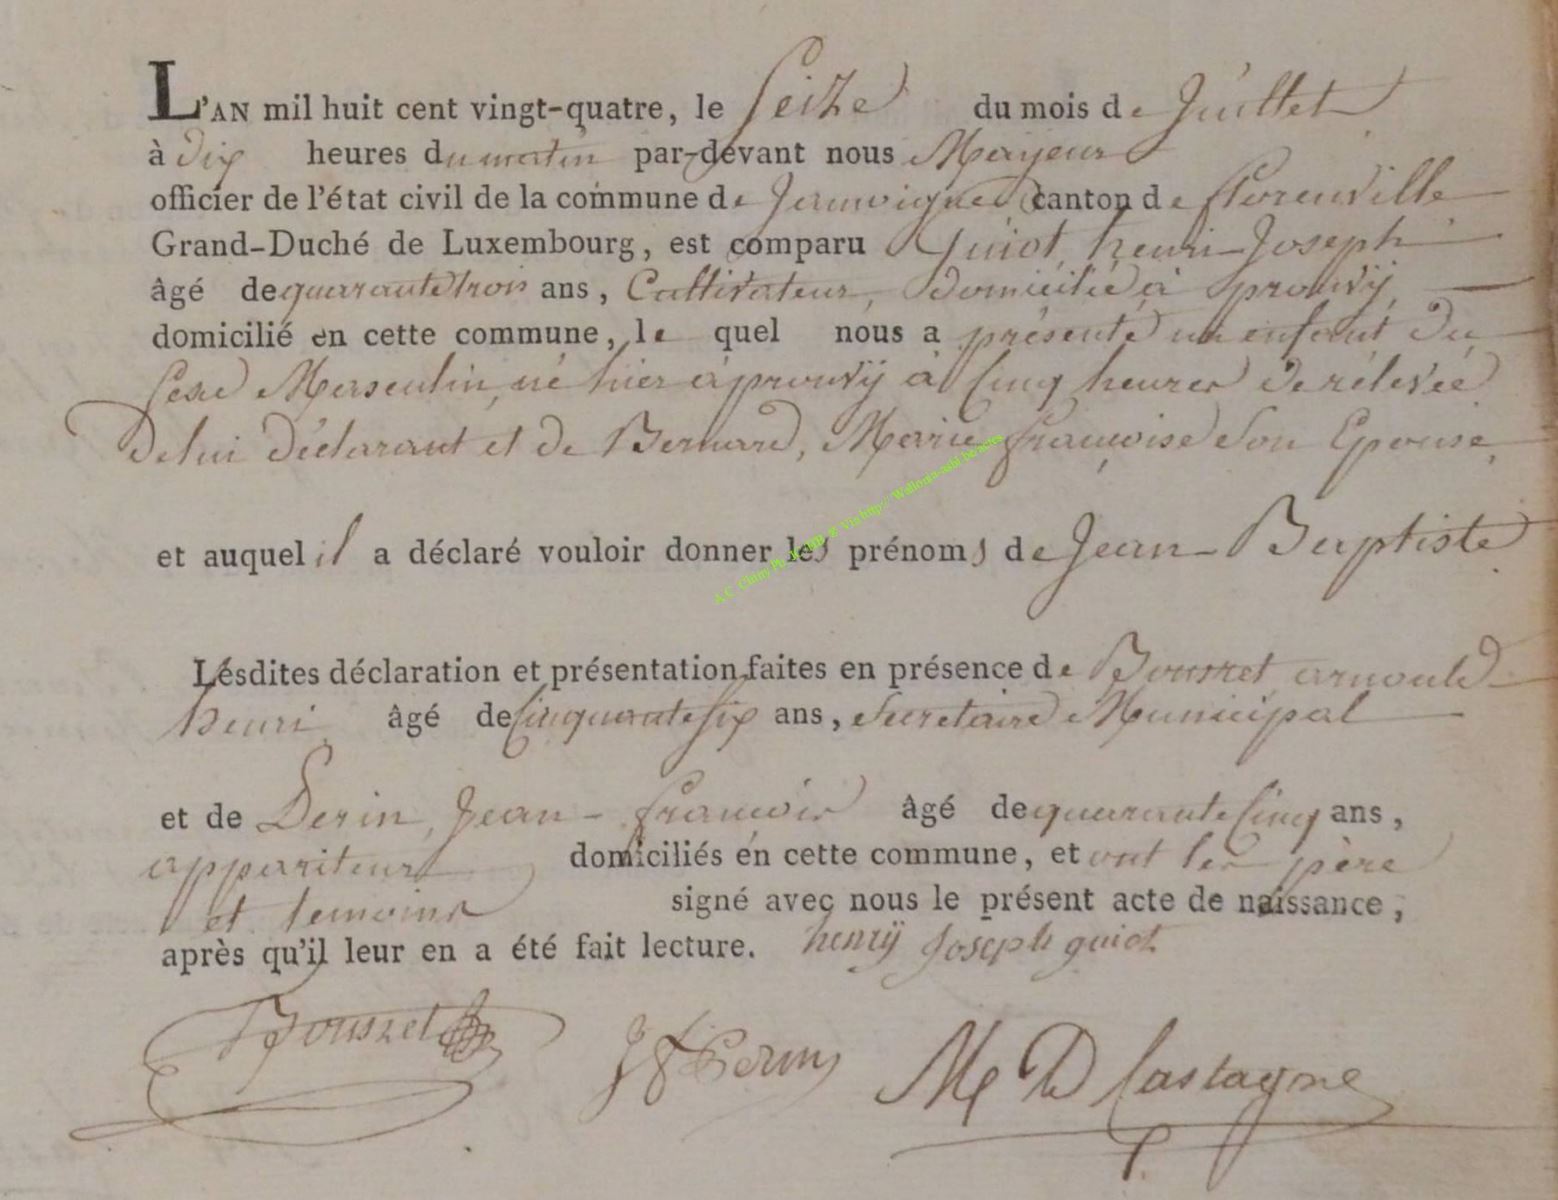 L'AN mil huit cent vingt-quatre, le Seize du mois de Juillet
à dix heures du matin par-devant nous Mayeur
officier de l'état civil de la commune de Jamoigne canton de florenville
Grand-Duché de Luxembourg, est comparu Guiot, henri-Joseph
âgé de quarante trois ans, Cultivateur, domicilié à prouvÿ,
domicilié en cette commune, le quel nous a présenté un enfant du
Sexe Masculin, né hier à prouvÿ à Cinq heures de rélevée
de lui déclarant et de Bernard, Marie françoise Son Epouse,
et auquel il a déclaré vouloir donner les prénoms de Jean-Baptiste
Lésdites déclaration et présentation faites en présence de Bouszet arnould
henri âgé de Cinquante Six ans, Secretaire Municipal
et de Perin, Jean-françois âgé de quarante Cinq ans,
appariteur domiciliés en cette commune, et ont les père
et temoins signé avec nous le présent acte de naissance,
après qu'il leur en a été fait lecture. henrÿ Joseph guiot
Bouszet J f Perin M D Castagne